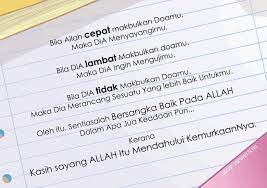 Bila Allah cepat makbulkan Doamu,
Maka DIA Menyayangimu.
Bila DIA lambat Makbulkan doamu,
Maka DIA Ingin Mengujimu.
Bila DIA tidak Makbulkan Doamu,
Maka Dia Merancang Sesuatu Yang lebih Baik Untukmu.
Oleh itu, Sentiasalah Bersangka Baik Pada ALLAH
Dalam Apa Jua Keadaan Pun...
Kerana
Kasih sayang ALLAH itu Mendahului KemurkaanNya.